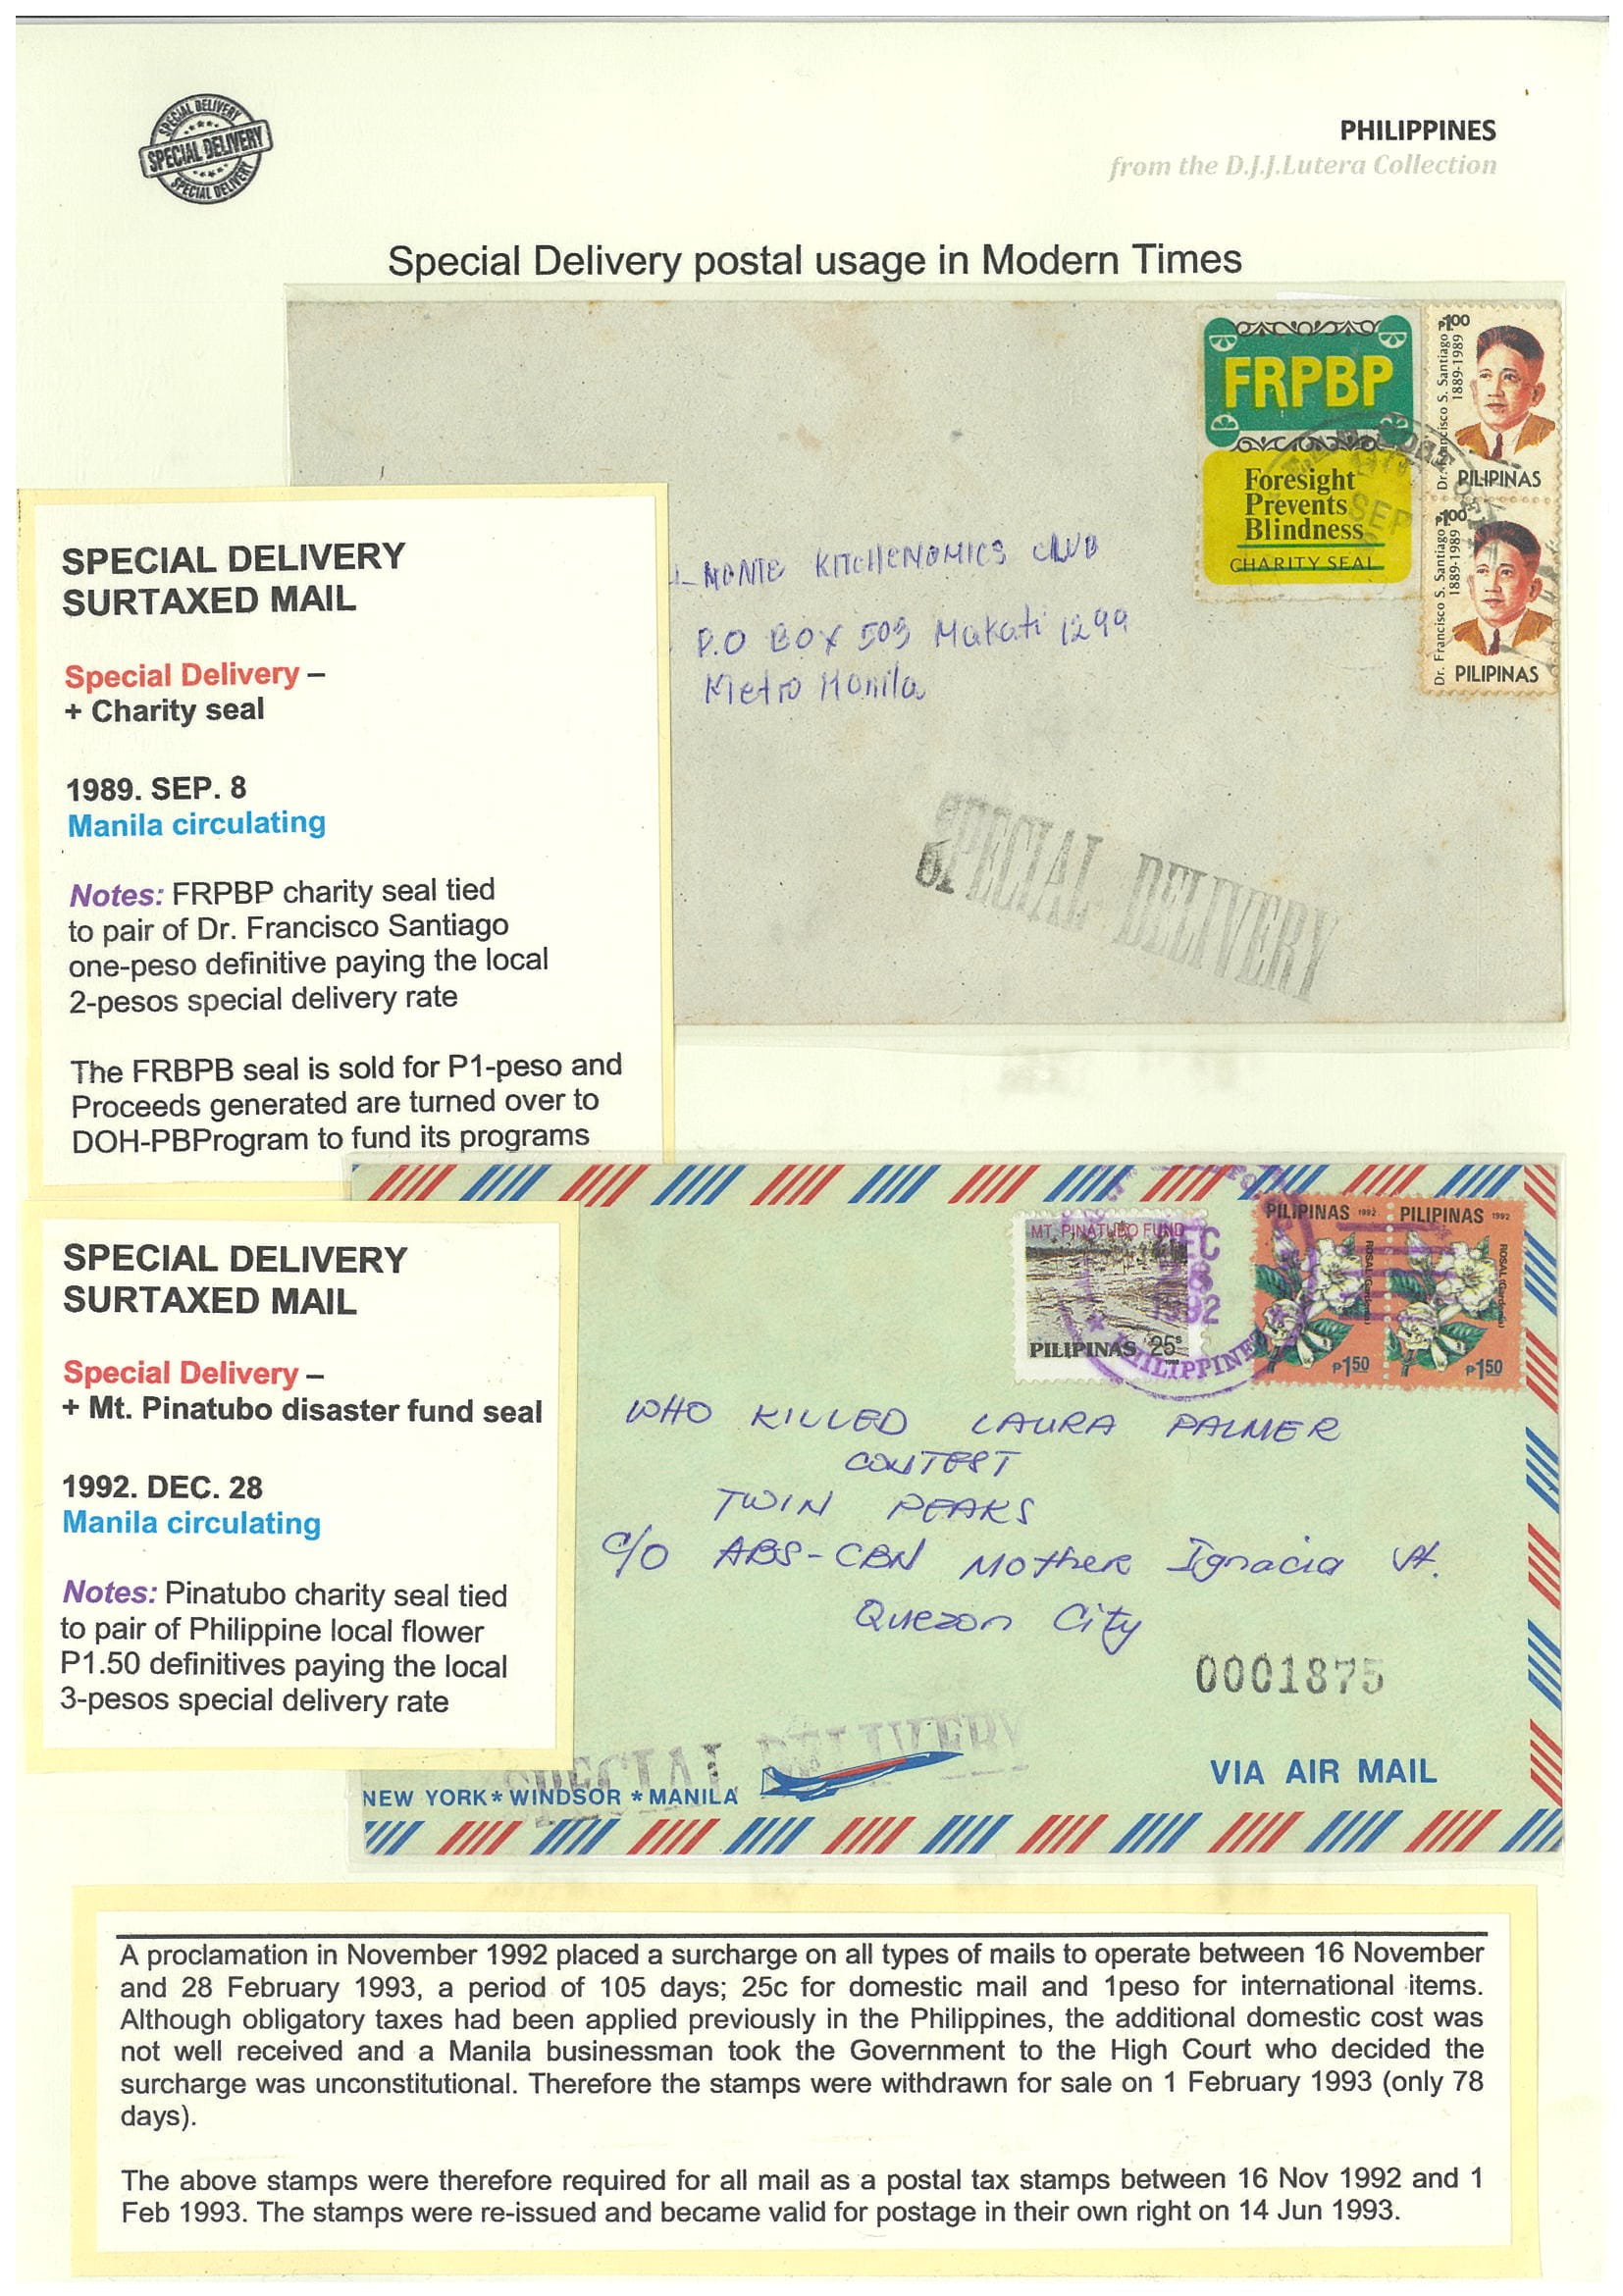 SPECIAL DELIVERY
SPECIAL DELIVERY
SPECIAL DELIVERY
PHILIPPINES
from the D.J.J.Lutera Collection
Special Delivery postal usage in Modern Times
FRPBP
Foresight
Prevents
Blindness
CHARITY SEAL
SEP
₱1.00
Dr. Francisco S. Santiago
1889-1989
PILIPINAS
₱1.00
Dr. Francisco S. Santiago
1889-1989
PILIPINAS
MONTE KITCHENOMICS CLUB
P.O BOX 503 Makati 1299
Metro Manila
SPECIAL DELIVERY
SPECIAL DELIVERY
SURTAXED MAIL
Special Delivery –
+ Charity seal
1989. SEP. 8
Manila circulating
Notes: FRPBP charity seal tied
to pair of Dr. Francisco Santiago
one-peso definitive paying the local
2-pesos special delivery rate
The FRBPB seal is sold for P1-peso and
Proceeds generated are turned over to
DOH-PBProgram to fund its programs
SPECIAL DELIVERY
SURTAXED MAIL
Special Delivery –
+ Mt. Pinatubo disaster fund seal
1992. DEC. 28
Manila circulating
Notes: Pinatubo charity seal tied
to pair of Philippine local flower
P1.50 definitives paying the local
3-pesos special delivery rate
MT. PINATUBO FUND
PILIPINAS 25s
28
1992
PHILIPPINES
PILIPINAS 1992
ROSAL (Gardenia)
₱1.50
PILIPINAS 1992
ROSAL (Gardenia)
₱1.50
WHO KILLED LAURA PALMER
CONTEST
TWIN PEAKS
c/o ABS-CBN Mother Ignacia St.
Quezon City
0001875
SPECIAL DELIVERY
NEW YORK * WINDSOR * MANILA
VIA AIR MAIL
A proclamation in November 1992 placed a surcharge on all types of mails to operate between 16 November
and 28 February 1993, a period of 105 days; 25c for domestic mail and 1peso for international items.
Although obligatory taxes had been applied previously in the Philippines, the additional domestic cost was
not well received and a Manila businessman took the Government to the High Court who decided the
surcharge was unconstitutional. Therefore the stamps were withdrawn for sale on 1 February 1993 (only 78
days).
The above stamps were therefore required for all mail as a postal tax stamps between 16 Nov 1992 and 1
Feb 1993. The stamps were re-issued and became valid for postage in their own right on 14 Jun 1993.